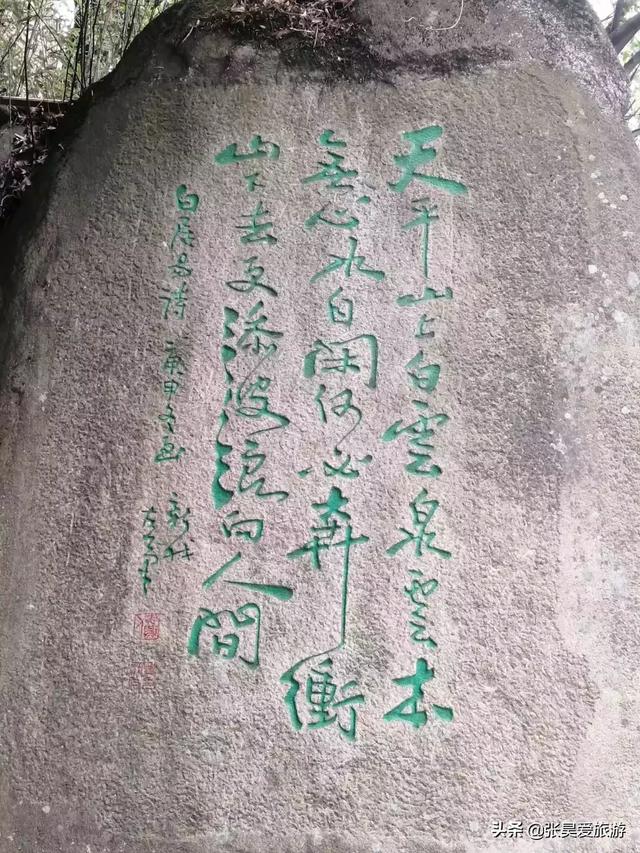 天平山上白雲泉雲本
無心水自閑何必奔衝
山下去更添波浪向人間
白居易詩 庚申冬 新我
左筆
头条 @张昊爱旅游